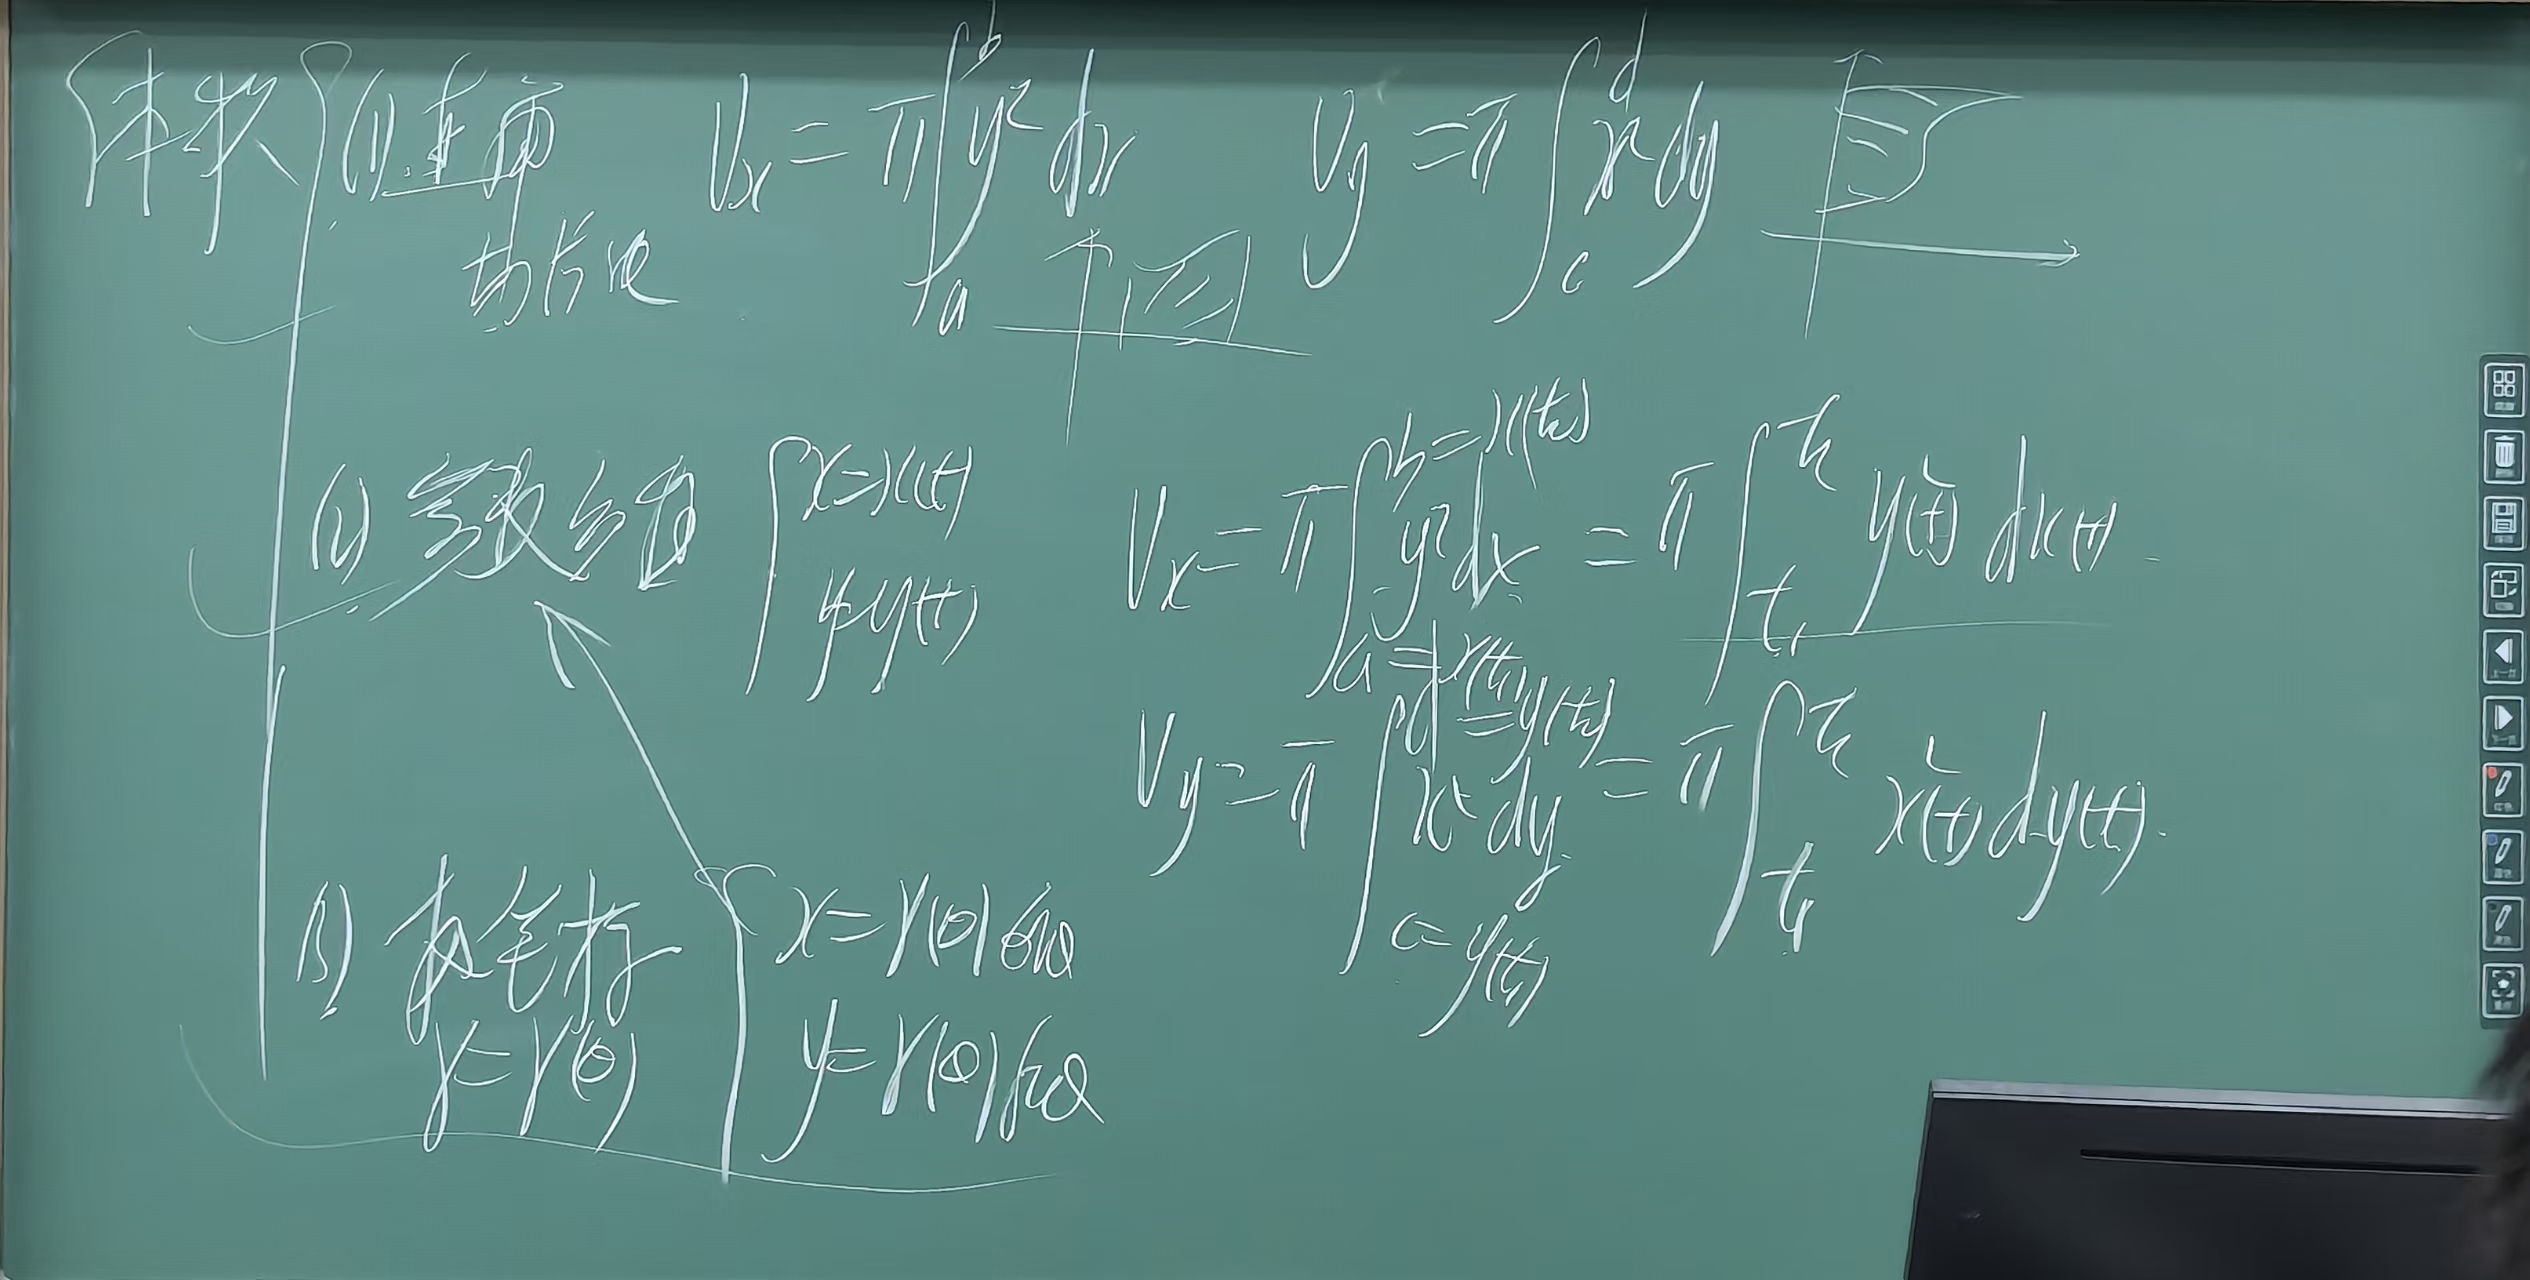 体积 (1) 直角 Vx = π∫_a^b y² dx Vy = π∫_c^d x² dy
切片法
(2) 参数方程 { x=x(t) Vx = π∫_{a=x(t₁)}^{b=x(t₂)} y² dx = π∫_{t₁}^{t₂} y²(t) dx(t).
y=y(t)
Vy = π∫_{c=y(t₁)}^{d=y(t₂)} x² dy = π∫_{t₁}^{t₂} x²(t) dy(t).
(3) 极坐标 { x=r(θ)cosθ
r=r(θ) y=r(θ)sinθ